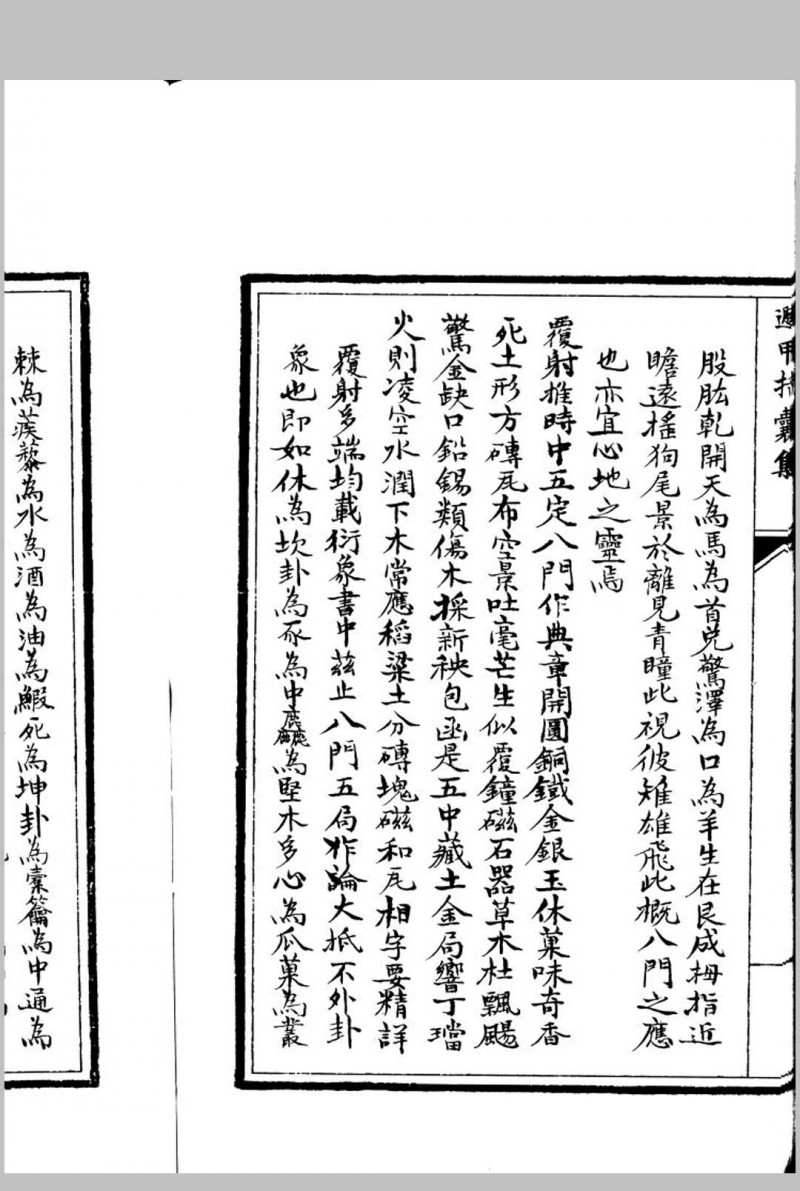 遁甲括囊集
股肱乾開天為馬為首兌驚澤為口為羊生在艮成拇指近
瞻遠搖狗尾景於離見青瞳此視彼雉雄飛此概八門之應
也亦宜心地之靈焉
覆射推時中五定八門作典章開圓銅鐵金銀玉休菓味奇香
死土形方磚瓦布空景吐毫芒生似覆鐘磁石器草木杜飄颺
驚金缺口鉛錫類傷木採新秧包函是五中藏土金局響丁璫
火則凌空水潤下木常應稻粱土分磚塊磁和瓦相字要精詳
覆射多端均載衍象書中茲止八門五局作論大抵不外卦
象也即如休為坎卦為豕為中為堅木多心為瓜菓為叢
棘為蒺藜為水為酒為油為鰕死為坤卦為橐籥為中通為